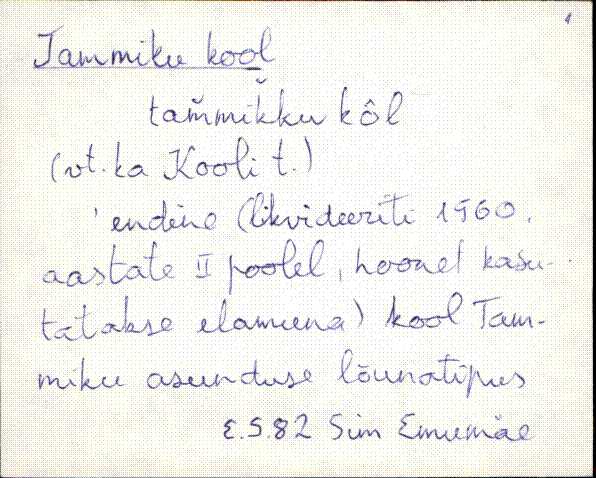 1
Tammiku kool
tam̆mik̆ku kôl
(vt. ka Kooli t.)
'endine (likvideeriti 1960.
aastate II poolel, hoonet kasu-
tatakse elamuna) kool Tam-
miku asunduse lõunatipus
E.S.82 Sim Emumäe